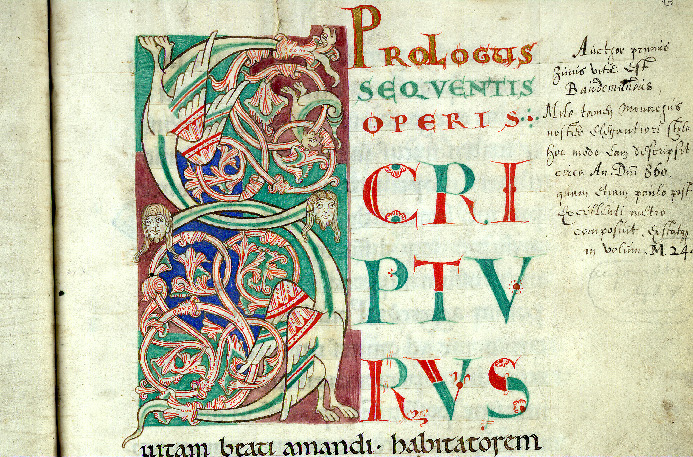 PROLOGUS
SEQVENTIS
OPERIS:
SCRI
PTV
RVS
uitam beati amandi· habitatorem
Auctor primus
huius vitæ Est
Baudemundus,
Milo tamen monachus
noster Elegantiori stylo
hoc modo eam descripsit
circa An. Dni 860.
quam Etiam paulo post
Excellenti metro
composuit,
in volum. M. 24.